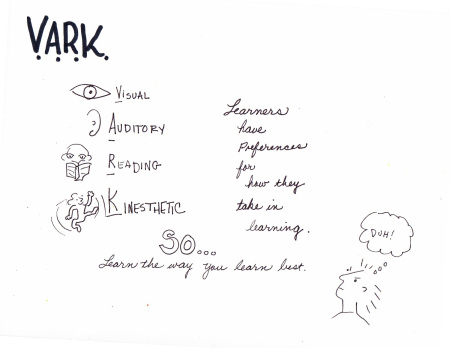 V.A.R.K.
VISUAL
AUDITORY
READING
KINESTHETIC
Learners
have
Preferences
for
how they
take in
learning.
SO...
Learn the way you learn best.
DUH!